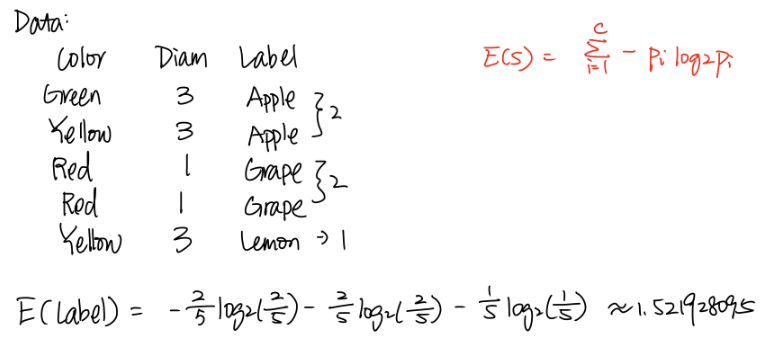 Data:
Color Diam Label
Green 3 Apple
Yellow 3 Apple } 2
Red 1 Grape
Red 1 Grape } 2
Yellow 3 Lemon → 1
E(S) = \sum_{i=1}^{c} - p_i log_2 p_i
E(Label) = -\frac{2}{5} log_2(\frac{2}{5}) - \frac{2}{5} log_2(\frac{2}{5}) - \frac{1}{5} log_2(\frac{1}{5}) ≈ 1.521928095